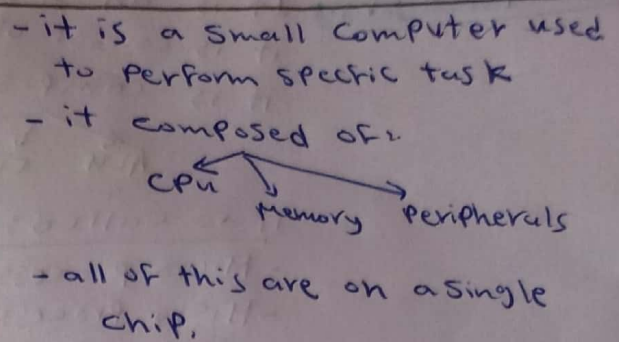 - it is a small computer used
to perform specfic task
- it composed of:
CPU
Memory
Peripherals
- all of this are on a single
chip.